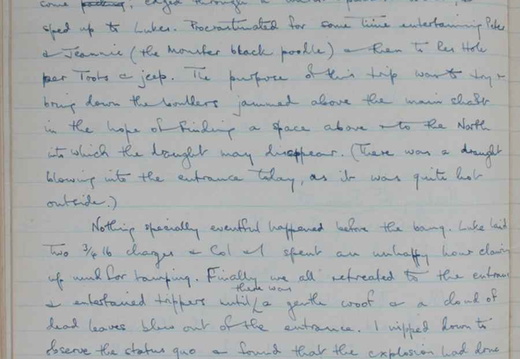 come packing, edged through a
sped up to Lukes. Procrastinated for some time entertaining Pete
& Jeannie (the Monster black poodle) & then to les Hole
per Toots & jeep. The purpose of this trip was to try &
bring down the boulders jammed above the main shaft
in the hope of finding a space above & to the North
into which the draught may disappear. (There was a draught
blowing into the entrance today, as it was quite hot
outside.)
Nothing specially eventful happened before the bang. Luke laid
two 3/4 lb charges & Col & I spent an unhappy hour clawing
up mud for tamping. Finally we all retreated to the entrance
there was
& entertained trippers until a gentle woof & a cloud of
dead leaves blew out of the entrance. I nipped down to
observe the status quo & found that the explosion had done